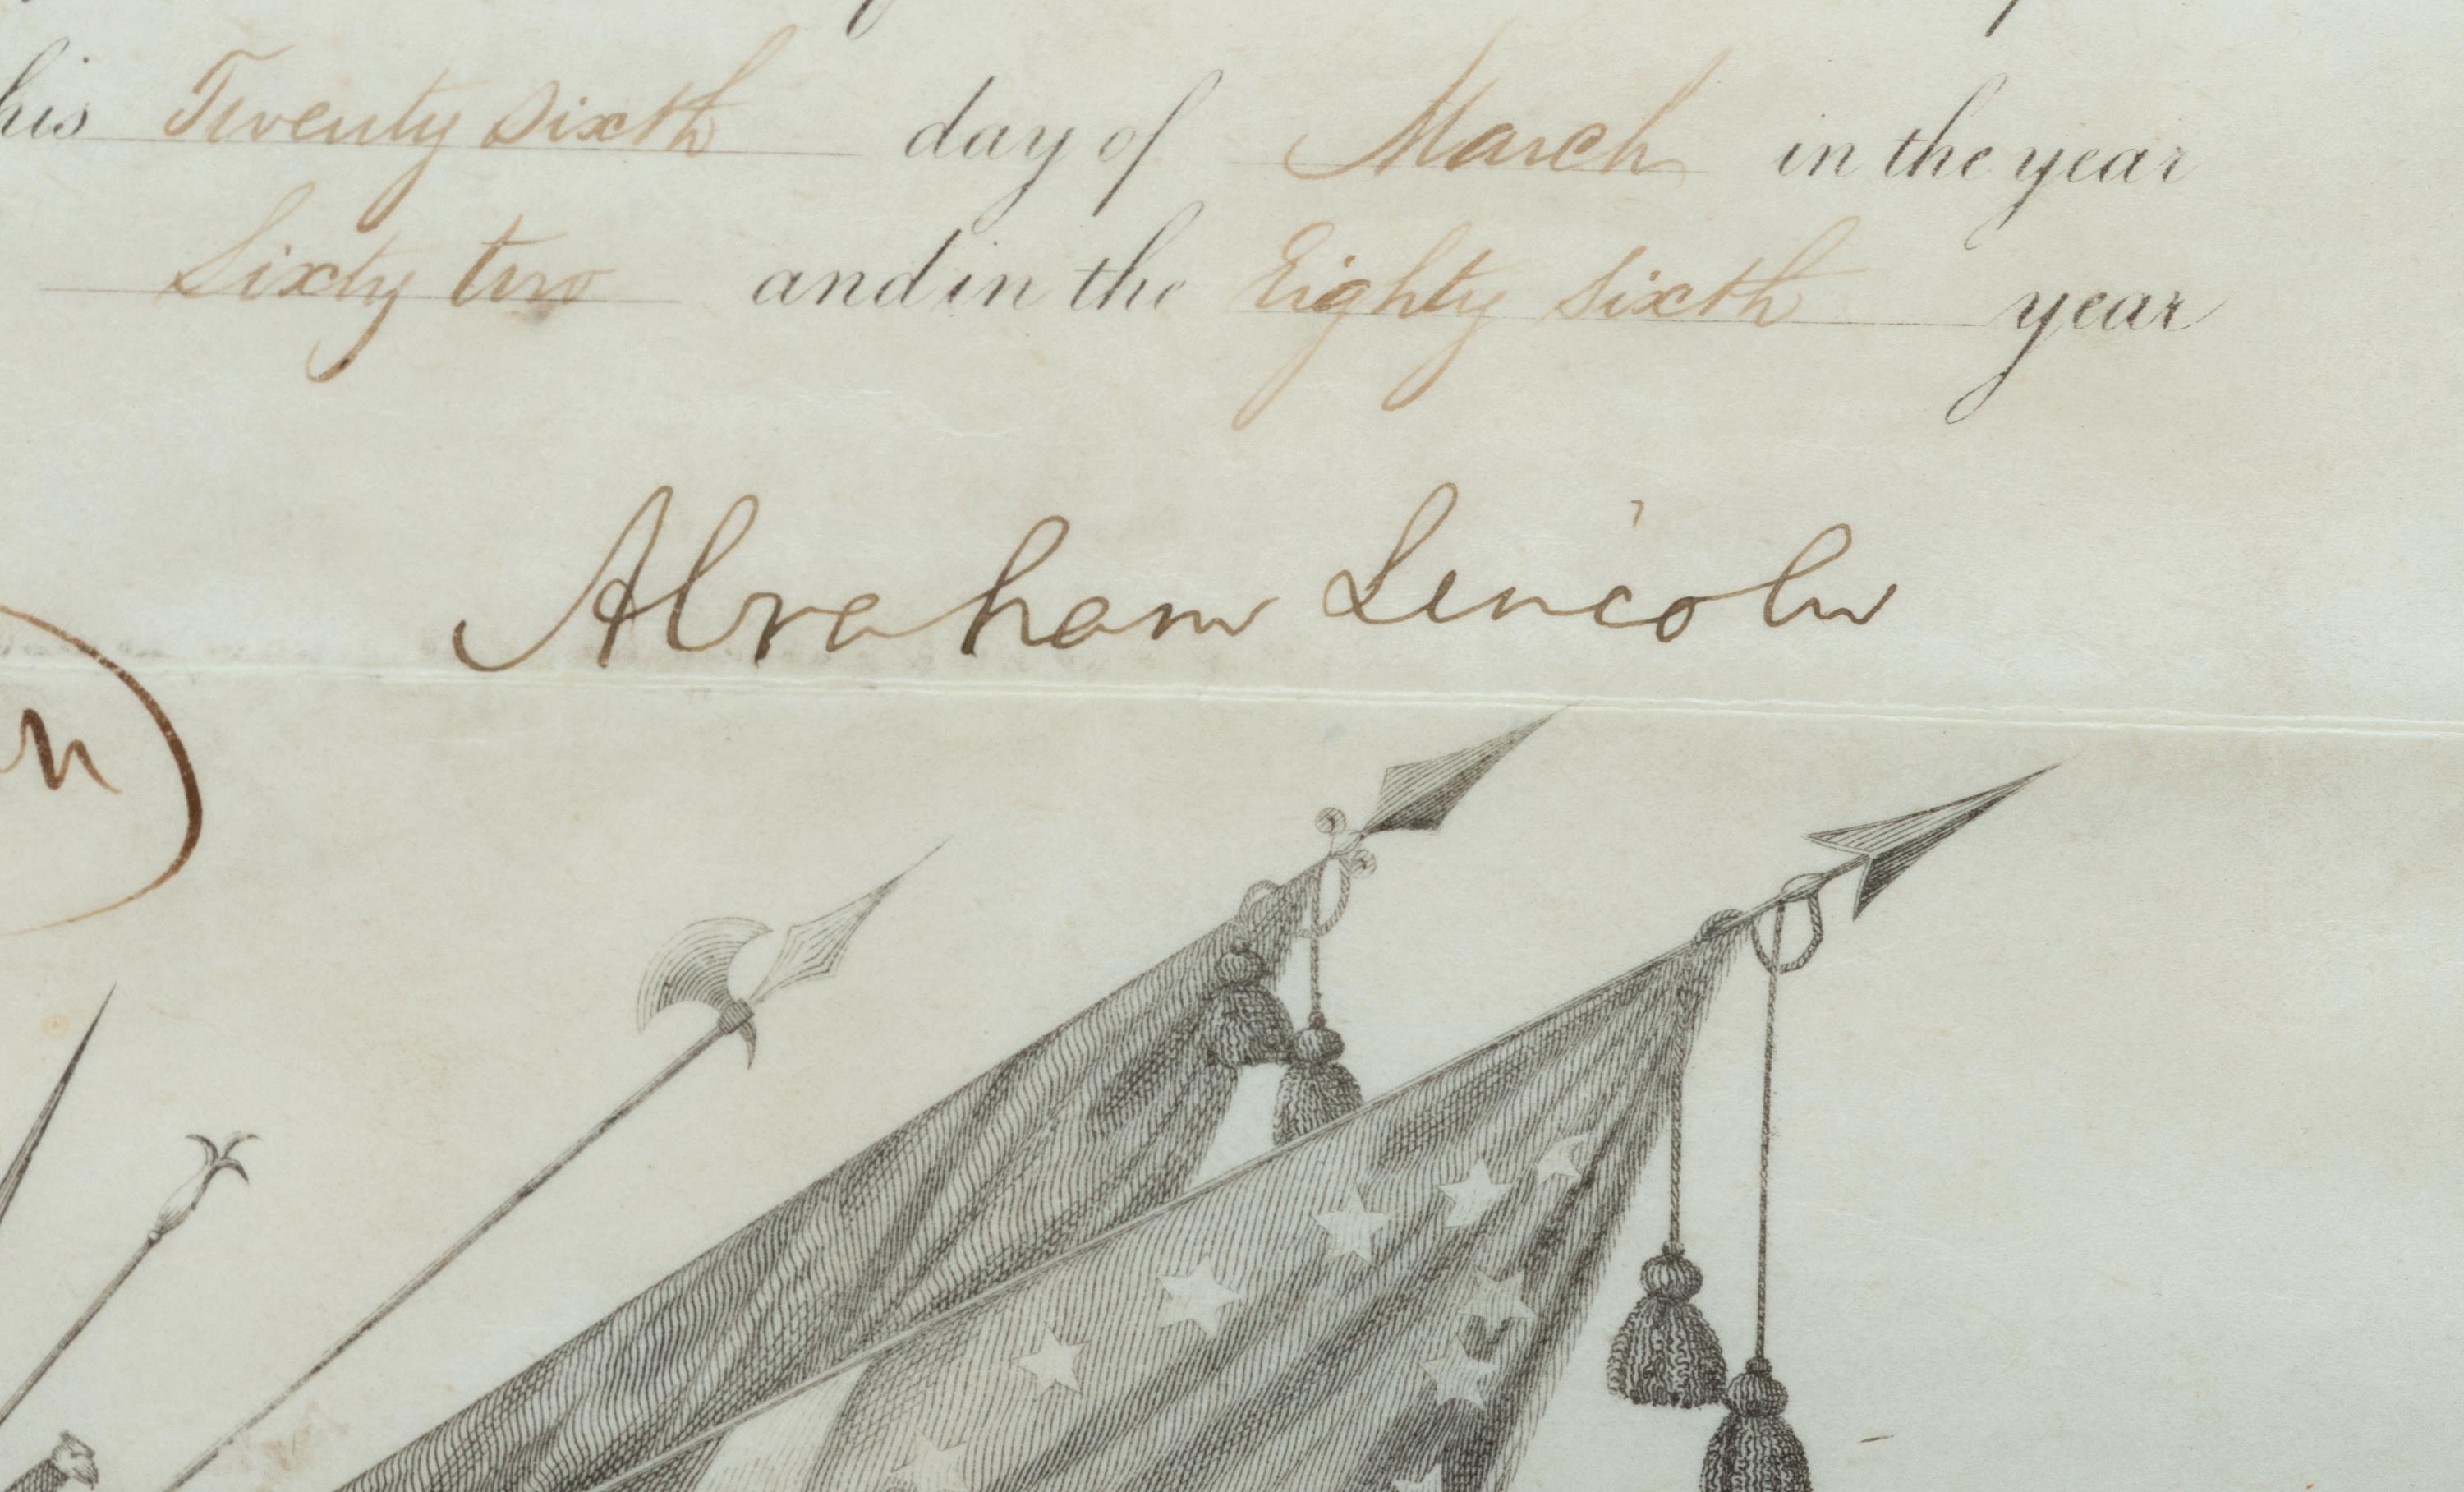 his Twenty sixth day of March in the year
Sixty two and in the Eighty Sixth year
Abraham Lincoln
n